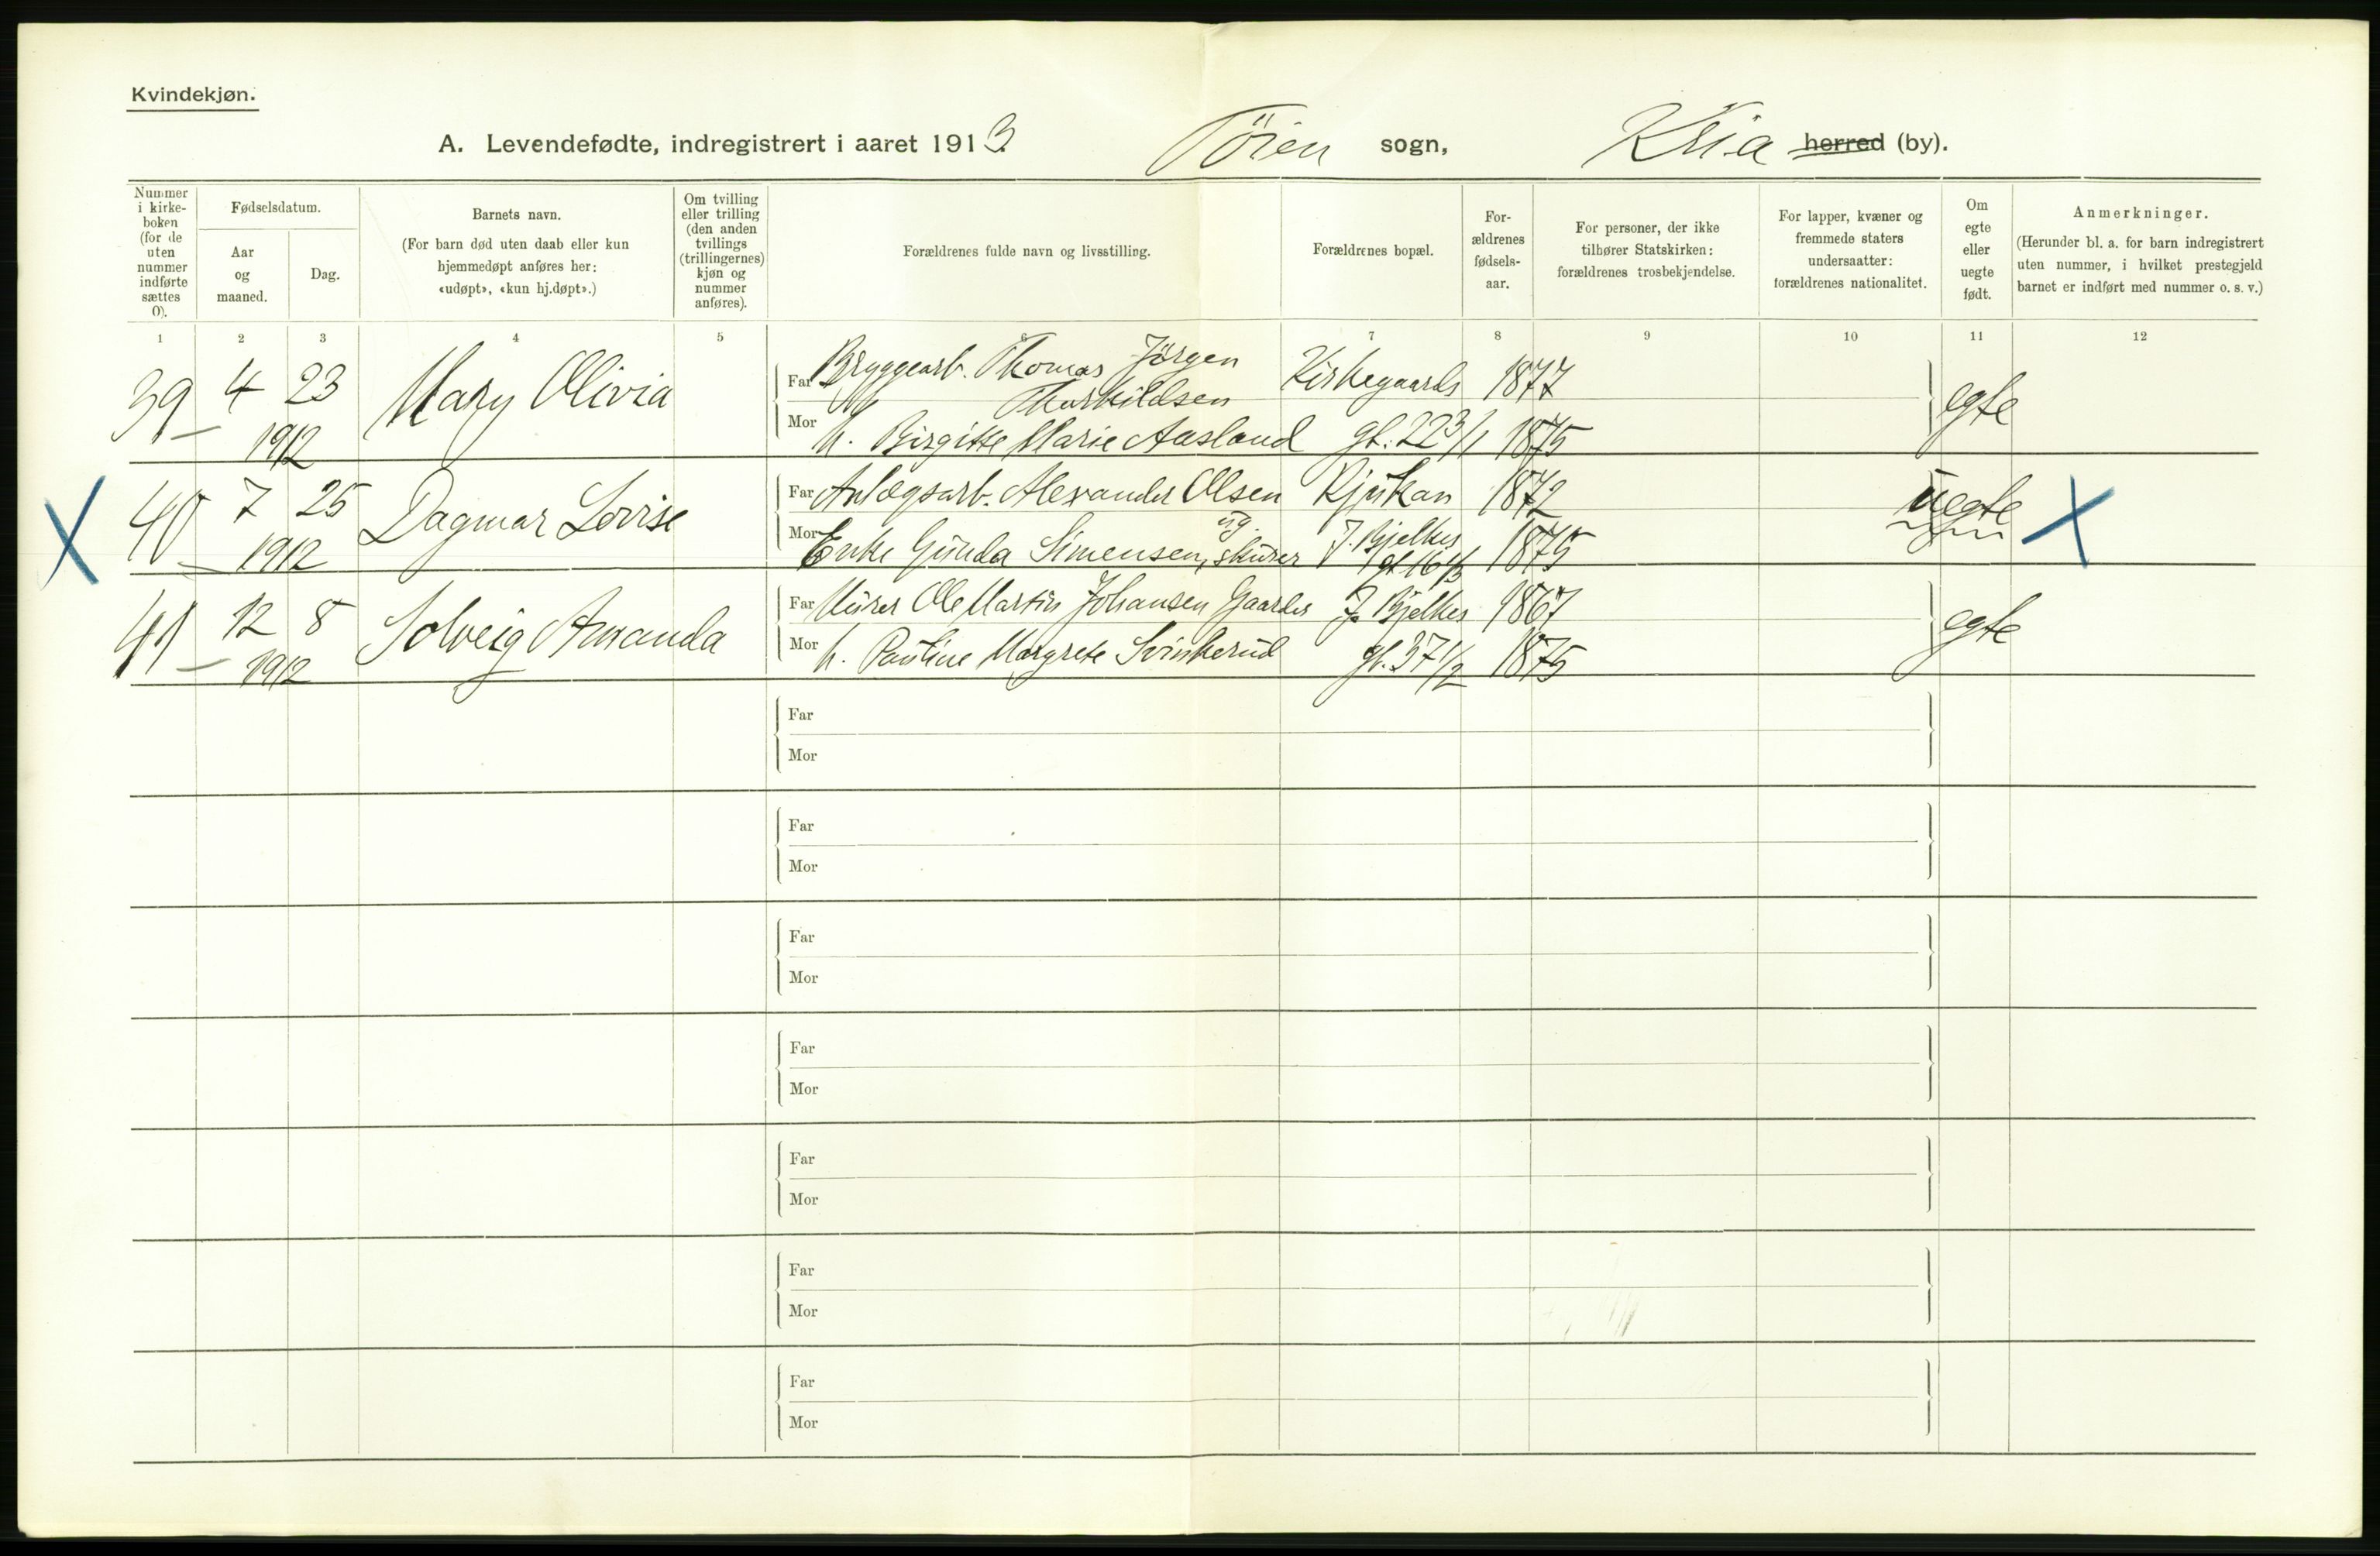 Kvindekjøn.
A. Levendefødte, indregistrert i aaret 1913. Tøien sogn, Kria herred (by).
Nummer i kirke- boken (for de uten nummer indførte sættes 0).
Fødselsdatum.
Aar og maaned.
Dag.
Barnets navn.
(For barn død uten daab eller kun hjemmedøpt anføres her: «udøpt», «kun hj.døpt».)
Om tvilling eller trilling (den anden tvillings (trillingernes) kjøn og nummer anføres).
Forældrenes fulde navn og livsstilling.
Forældrenes bopæl.
For- ældrenes fødsels- aar.
For personer, der ikke tilhører Statskirken: forældrenes trosbekjendelse.
For lapper, kvæner og fremmede staters undersaatter: forældrenes nationalitet.
Om egte eller uegte født.
Anmerkninger.
(Herunder bl. a. for barn indregistrert uten nummer, i hvilket prestegjeld barnet er indført med nummer o. s. v.)
1 2 3 4 5 6 7 8 9 10 11 12
39 4 23 Mary Olivia Far Bryggearb. Thomas Jörgen Kirkegaards 1877 egte
Thorkildsen
1912 Mor h. Birgitte Marie Aasland gt. 22 3/1 1875
X 40 7 25 Dagmar Lovise Far Anlægsarb. Alexander Olsen Rjukan 1872 uegte X
1912 Mor Enke Gunda Simensen, ug. skurer J. Bjelkes gt 16 1/3 1875
41 12 8 Solveig Amanda Far Murer Ole Martin Johansen Gaarder J. Bjelkes 1867 egte
1912 Mor h. Pauline Margrete Svinkerud gt. 37 1/2 1875
Far
Mor
Far
Mor
Far
Mor
Far
Mor
Far
Mor
Far
Mor
Far
Mor